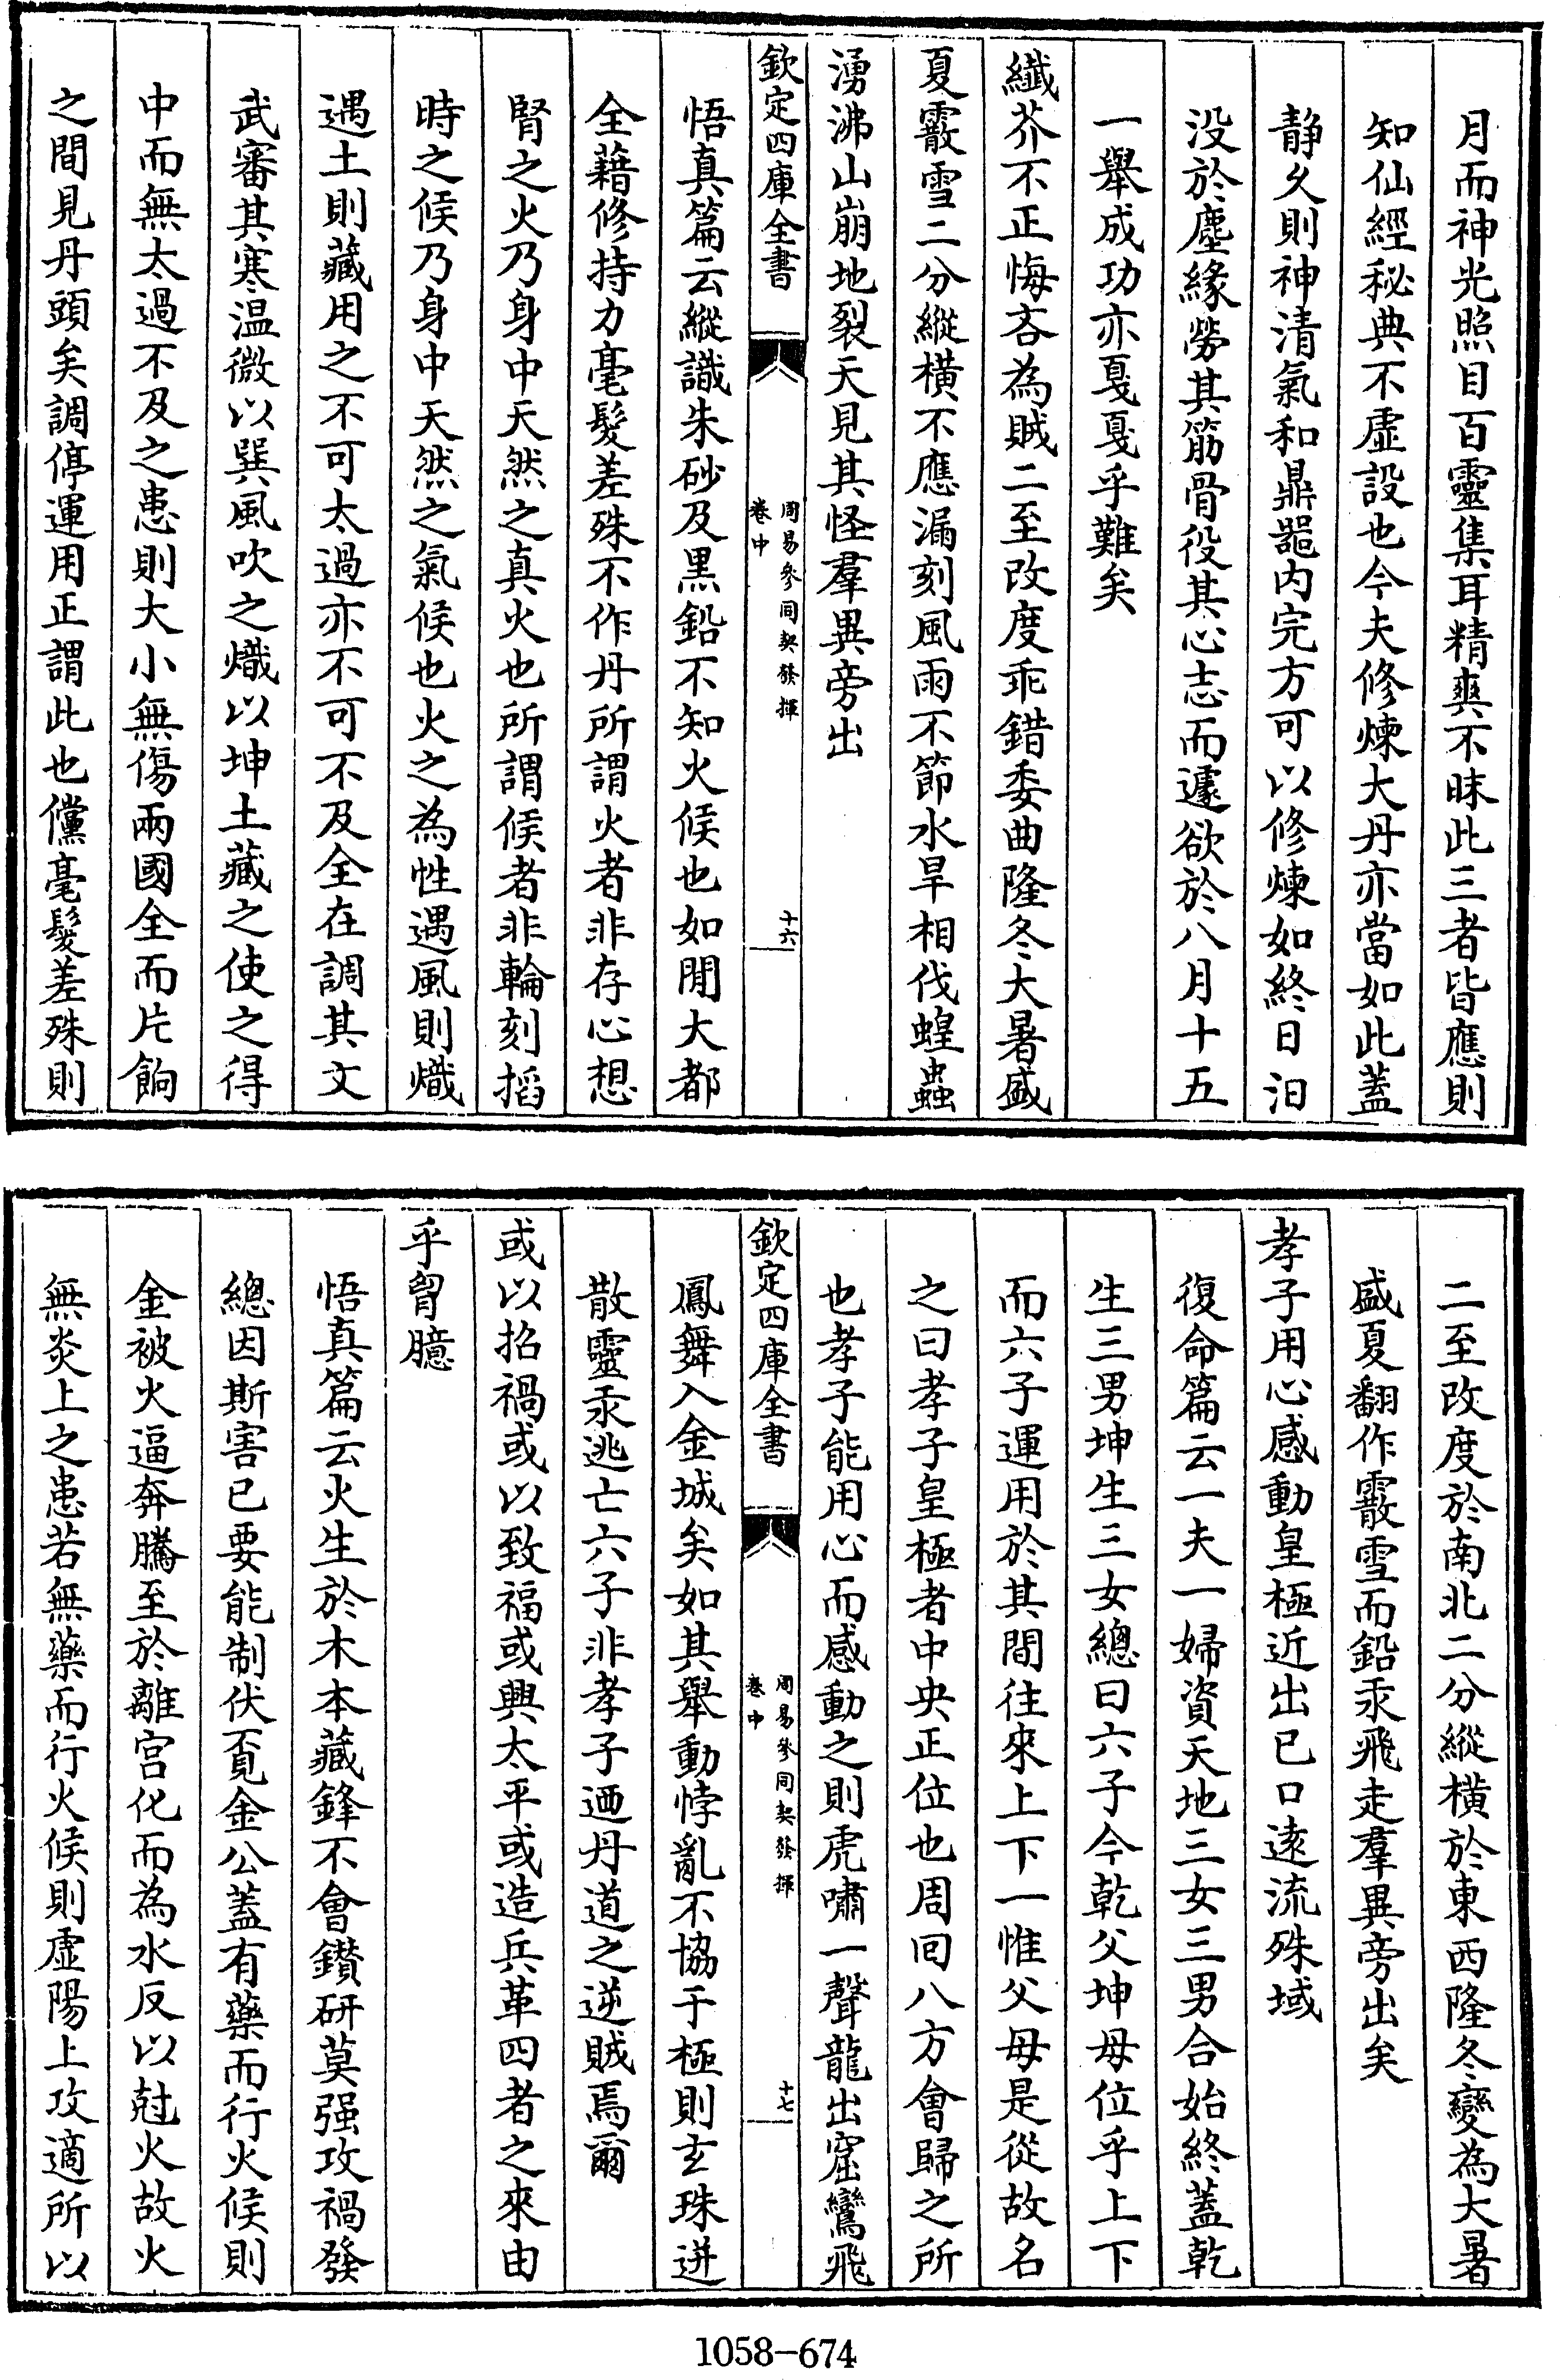 月而神光照目百靈集耳精爽不昧此三者皆應則
知仙經秘典不虛設也今夫修煉大丹亦當如此蓋
静久則神清氣和鼎器内完方可以修煉如終日汨
没於塵緣勞其筋骨役其心志而遽欲於八月十五
一舉成功亦戛戛乎難矣
纖芥不正悔吝為賊二至改度乖錯委曲隆冬大暑盛
夏霰雪二分縱横不應漏刻風雨不節水旱相伐蝗蟲
湧沸山崩地裂天見其怪羣異旁出
欽定四庫全書
周易參同契發揮
卷中
十六
悟真篇云縱識朱砂及黒鉛不知火候也如閒大都
全藉修持力毫髮差殊不作丹所謂火者非存心想
腎之火乃身中天然之真火也所謂候者非輪刻掐
時之候乃身中天然之氣候也火之為性遇風則熾
遇土則藏用之不可太過亦不可不及全在調其文
武審其寒温微以巽風吹之熾以坤土藏之使之得
中而無太過不及之患則大小無傷兩國全而片餉
之間見丹頭矣調停運用正謂此也儻毫髮差殊則
二至改度於南北二分縱横於東西隆冬變為大暑
盛夏翻作霰雪而鉛汞飛走羣異旁出矣
孝子用心感動皇極近出已口逺流殊域
復命篇云一夫一婦資天地三女三男合始終蓋乾
生三男坤生三女總曰六子今乾父坤母位乎上下
而六子運用於其間往來上下一惟父母是從故名
之曰孝子皇極者中央正位也周回八方會歸之所
也孝子能用心而感動之則虎嘯一聲龍出窟鸞飛
欽定四庫全書
周易參同契發揮
卷中
十七
鳳舞入金城矣如其舉動悖亂不協于極則玄珠迸
散靈汞逃亡六子非孝子迺丹道之逆賊焉爾
或以招禍或以致福或興太平或造兵革四者之來由
乎胷臆
悟真篇云火生於木本藏鋒不會鑚研莫强攻禍發
總因斯害已要能制伏覔金公蓋有藥而行火候則
金被火逼奔騰至於離宫化而為水反以尅火故火
無炎上之患若無藥而行火候則虛陽上攻適所以
1058-674